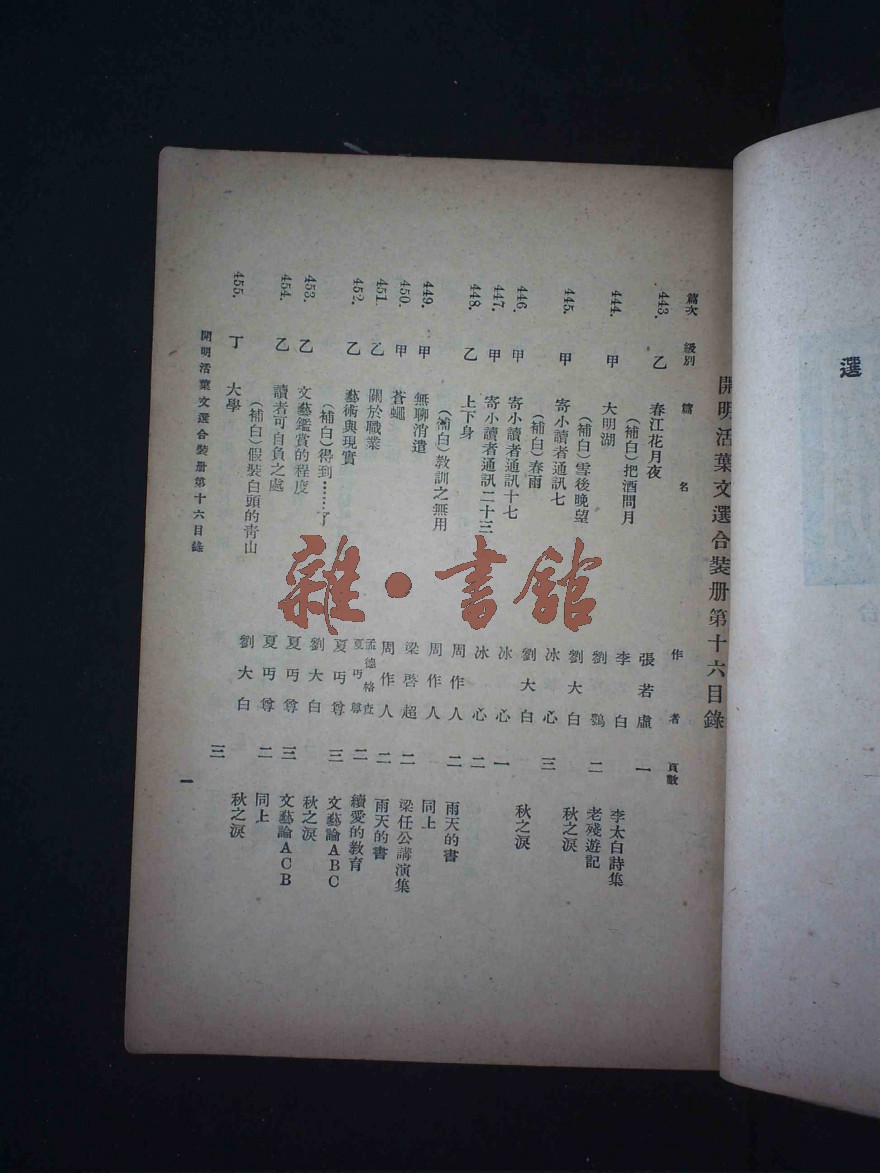 選
開明活葉文選合裝册第十六目錄
篇次 級別 篇名 作者 頁數
443. 乙 春江花月夜 張若虛 一
(補白)把酒問月 李白 李太白詩集
444. 甲 大明湖 劉鶚 二 老殘遊記
(補白)雪後晚望 劉大白 秋之淚
445. 甲 寄小讀者通訊七 冰心 三
(補白)春雨 劉大白 秋之淚
446. 甲 寄小讀者通訊十七 冰心 一
447. 甲 寄小讀者通訊二十三 冰心 二
448. 乙 上下身 周作人 二 雨天的書
(補白)教訓之無用 周作人 同上
449. 甲 無聊消遣 梁啓超 二 梁任公講演集
450. 甲 蒼蠅 周作人 二 雨天的書
451 乙 關於職業 孟德格查 夏丏尊 二 續愛的教育
452. 乙 藝術與現實 夏丏尊 三 文藝論ABC
(補白)得到……了 劉大白 秋之淚
453. 乙 文藝鑑賞的程度 夏丏尊 三 文藝論ACB
454. 乙 讀者可自負之處 夏丏尊 二 同上
(補白)假裝白頭的青山 劉大白 秋之淚
455. 丁 大學 三
開明活葉文選合裝册第十六目錄 一
雜·書館